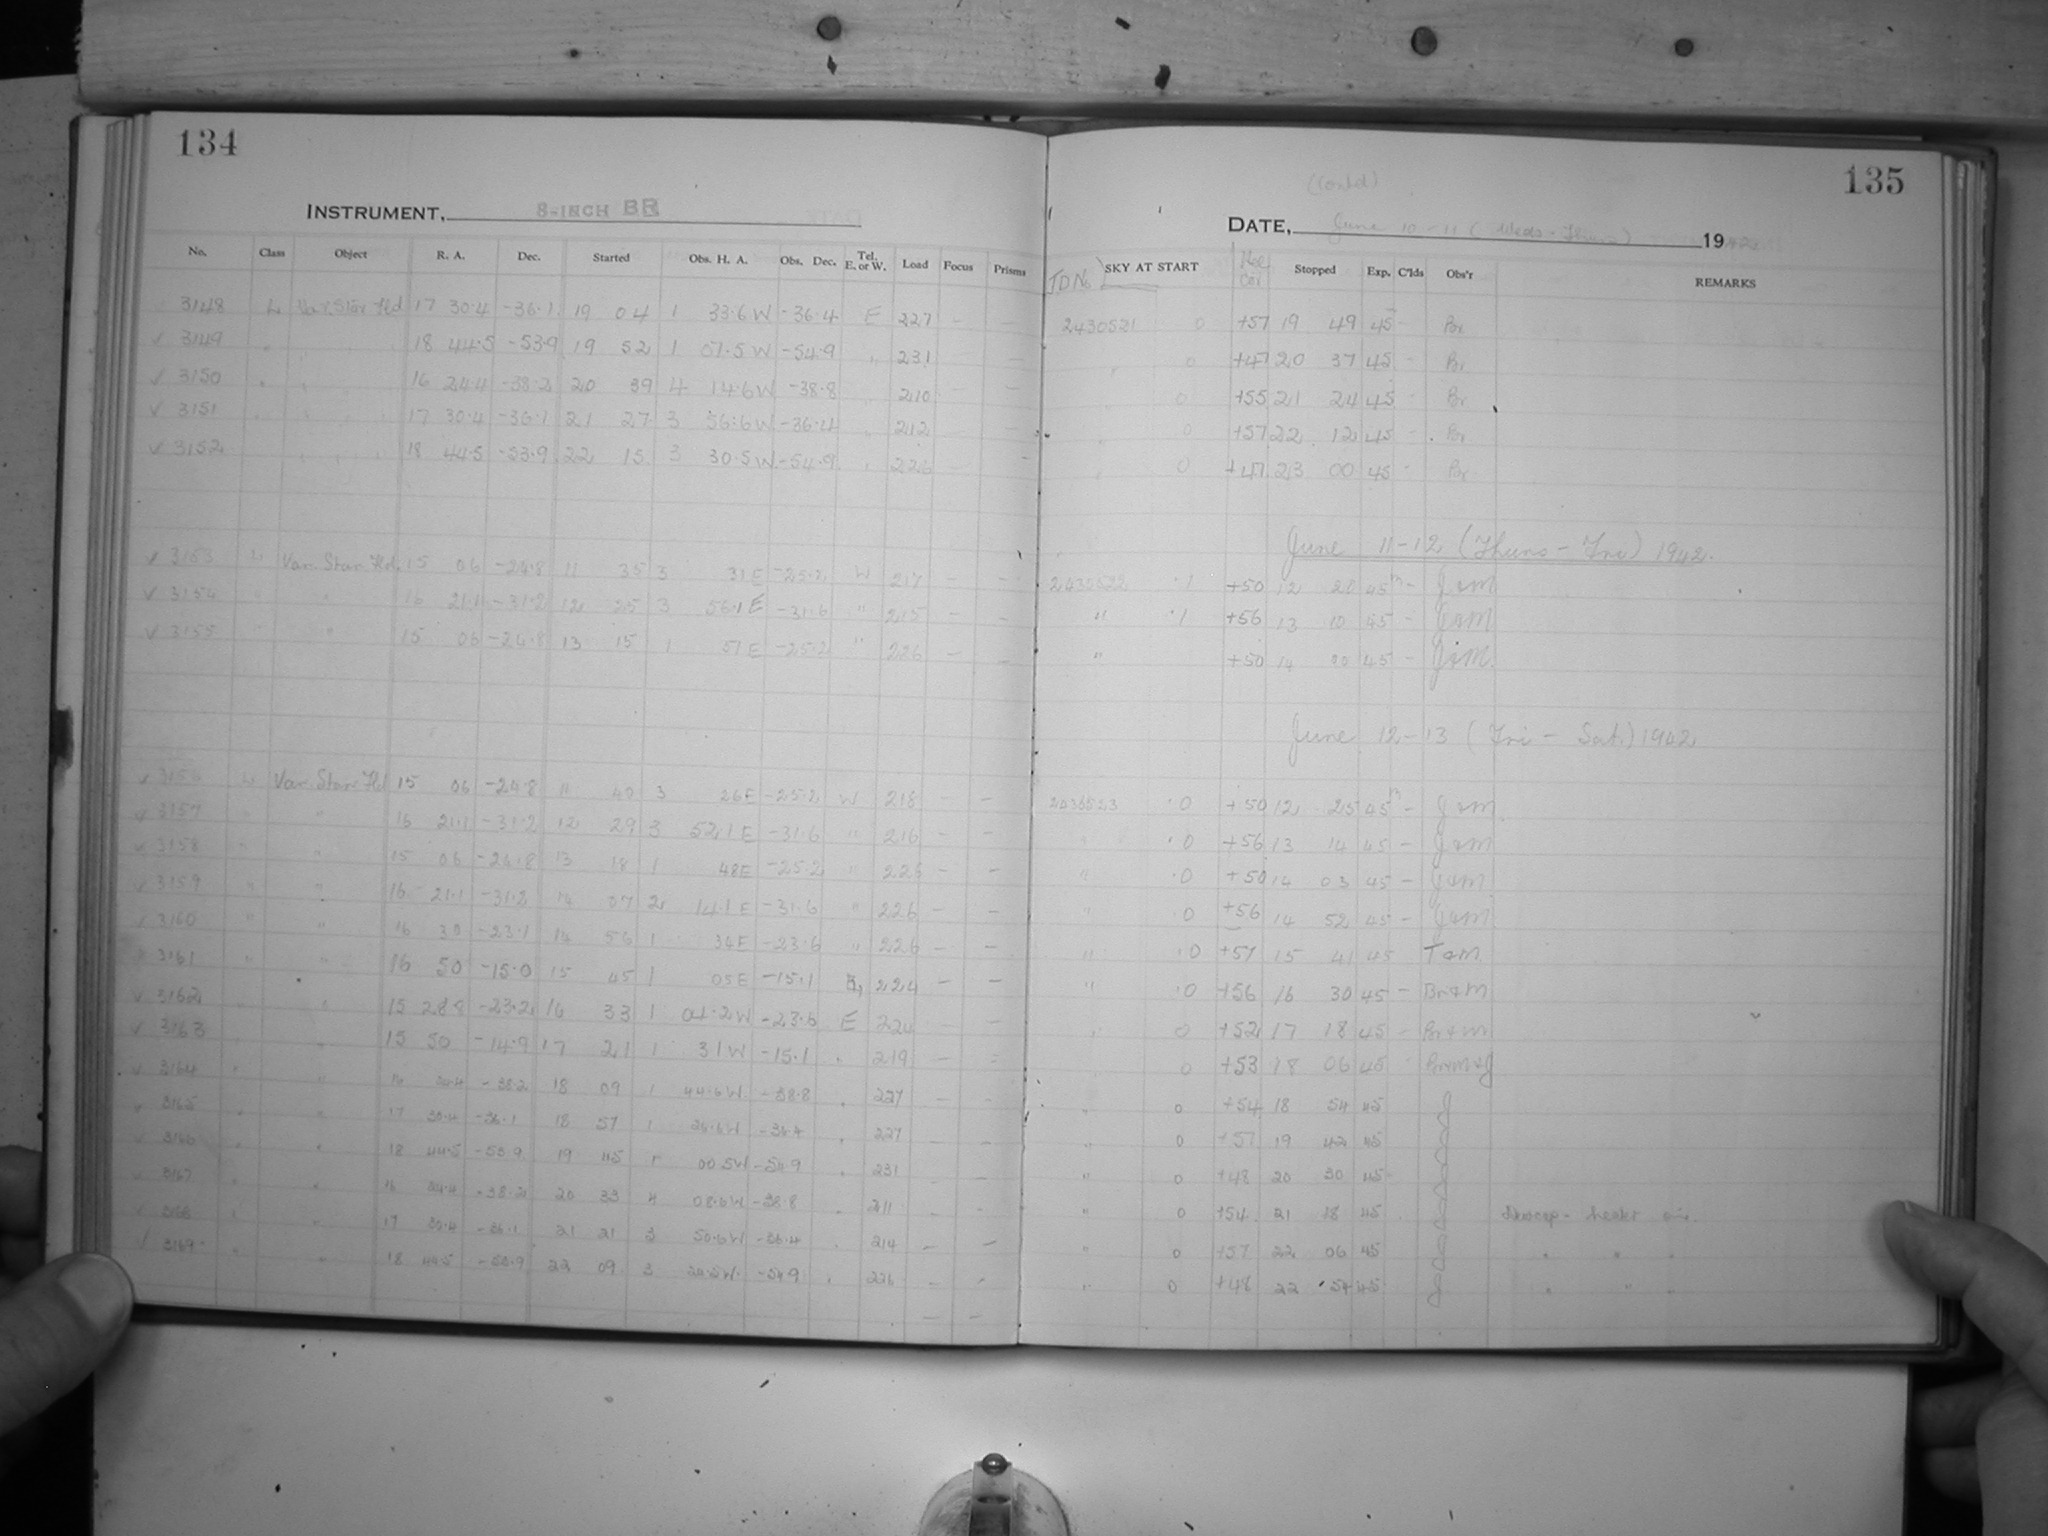 134
135
(Contd)
INSTRUMENT, 8-INCH BR
DATE, June 10-11 (Weds-Thurs) 1942
No. Class Object R. A. Dec. Started Obs. H. A. Obs. Dec. Tel. E. or W. Load Focus Prisms JDNo SKY AT START Stopped Exp. C'lds Obs'r REMARKS
3148 Var. Star Fld 17 30.4 -36.1 19 04 1 33.6 W -36.4 E 227 - - 2430521 0 +57 19 49 45 - Br
v 3149 " " 18 44.5 -53.9 19 52 1 07.5 W -54.9 " 231 - - " 0 +47 20 37 45 - Br
v 3150 " " 16 24.4 -38.2 20 39 4 14.6 W -38.8 " 210 - - 0 +55 21 24 45 - Br
v 3151 " " 17 30.4 -36.1 21 27 3 56.6 W -36.4 " 212 - - " 0 +57 22 12 45 - Br
v 3152 " " 18 44.5 -53.9 22 15 3 30.5 W -54.9 " 226 - - " 0 +47 23 00 45 - Br
June 11-12 (Thurs-Fri) 1942.
v 3153 Var. Star Fld. 15 06 -24.8 11 35 3 31 E -25.2 W 217 - - 2430522 .1 +50 12 20 45m - J&M
v 3154 " " 16 21.1 -31.2 12 25 3 56.1 E -31.6 " 215 - - " .1 +56 13 10 45 - J&M
v 3155 " " 15 06 -24.8 13 15 1 51 E -25.2 " 226 - - " +50 14 00 45 - J&M
June 12-13 (Fri - Sat.) 1942
v 3156 Var. Star Fld 15 06 -24.8 11 40 3 26 E -25.2 W 218 - - 2430523 .0 +50 12 25 45m - J&M
v 3157 " " 16 21.1 -31.2 12 29 3 52.1 E -31.6 " 216 - - " .0 +56 13 14 45 - J&M
v 3158 " " 15 06 -24.8 13 18 1 48 E -25.2 " 226 - - " .0 +50 14 03 45 - J&M
v 3159 " " 16 21.1 -31.2 14 07 2 14.1 E -31.6 " 226 - - " .0 +56 14 52 45 - J&M
v 3160 " " 16 30 -23.1 14 56 1 34 E -23.6 " 226 - - " .0 +57 15 41 45 J&M
v 3161 " " 16 50 -15.0 15 45 1 05 E -15.1 224 - - " .0 +56 16 30 45 - Br&M
v 3162 " 15 28.8 -23.2 16 33 1 04.2 W -23.6 E 224 - - " 0 +52 17 18 45 - Br&M
v 3163 " " 15 50 -14.9 17 21 1 31 W -15.1 " 219 - - " 0 +53 18 06 45 - Br&M&J
v 3164 " " 16 24.4 -38.2 18 09 1 44.6 W -38.8 " 227 - - " 0 +54 18 54 45 J
v 3165 " " 17 30.4 -36.1 18 57 1 26.6 W -36.4 " 227 - - " 0 +57 19 42 45 J
v 3166 " " 18 44.5 -53.9 19 45 1 00.5 W -54.9 " 231 - - " 0 +48 20 30 45 J
v 3167 " " 16 24.4 -38.2 20 33 4 08.6 W -38.8 " 211 - - " 0 +54 21 18 45 J
v 3168 " " 17 30.4 -36.1 21 21 3 50.6 W -36.4 " 214 - - " 0 +57 22 06 45 J " " "
v 3169 " " 18 44.5 -53.9 22 09 3 24.5 W -54.9 " 226 - - " 0 +48 22 54 45 J " " "